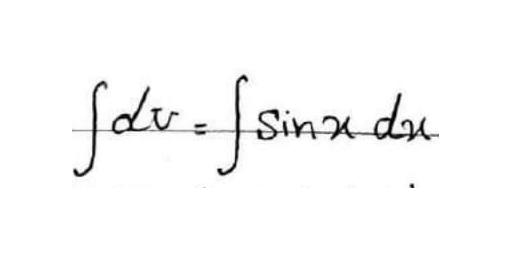 ∫dv = ∫sinx dx